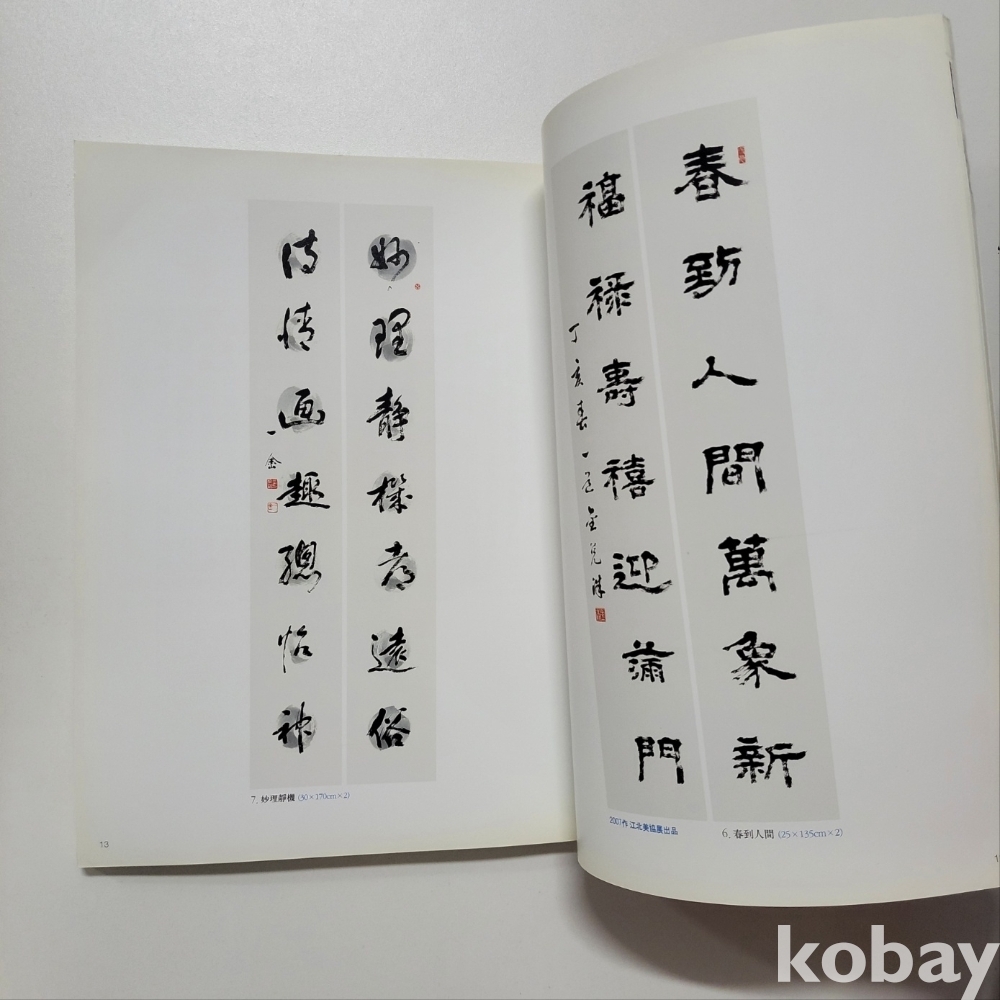 春到人間萬象新
福祿壽禧迎滿門
丁亥春
6. 春到人間 (25×135cm×2)
2007作 江北美協展出品
妙理靜機都遠俗
詩情画趣總怡神
7. 妙理靜機 (30×170cm×2)
13
kobay